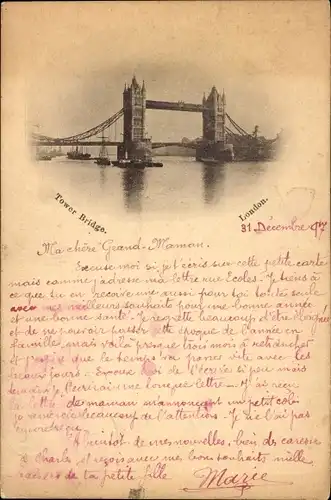 Tower Bridge.
London.
31 Décembre
Ma chère Grand-Maman.
Excuse moi si j'écris sur cette petite carte
mais comme j'adresse ma lettre rue Ecoles - Je tiens à
ce que tu en reçoive une aussi pour toi toute seule
avec mes meilleurs souhaits pour une bonne année
et une bonne santé. Je regrette beaucoup d'être
et de ne pouvoir passer cette époque de l'année en
famille, mais voilà presque trois mois à retrancher
et j'espère que le temps va passer vite avec les
jours - Excuse moi de t'écrire si peu mais
je t'écrirai une longue lettre - J'ai reçu
la lettre de maman m'annonçant un petit colis
je remercie beaucoup de l'attention. Je ne l'ai pas
encore reçu.
A bientôt de mes nouvelles, bien des caresses
à Charles et reçois avec me bons souhaits mille
baisers de ta petite fille Marie